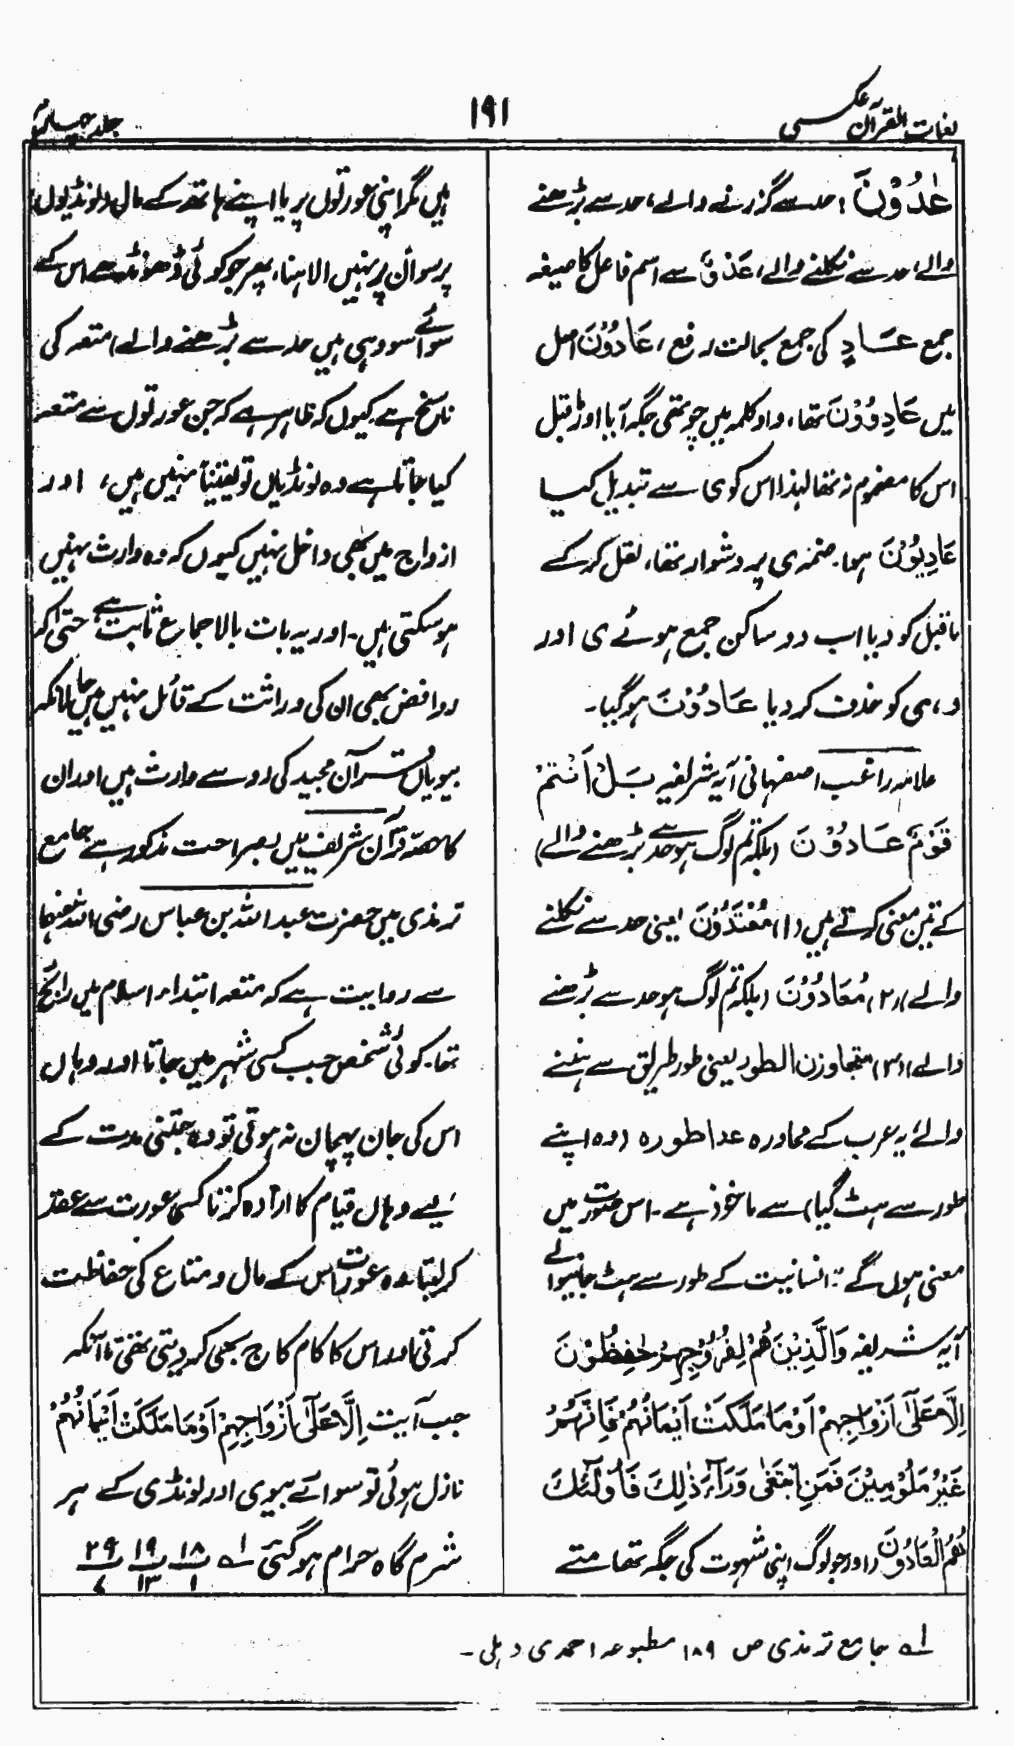 لغات القرآن عکسی
۱۹۱
جلد چہارم
عٰدُوْنَ : حد سے گزرنے والے، حد سے بڑھنے
والے، حد سے نکلنے والے، عَدْوٌ سے اسم فاعل کا صیغہ
جمع عَادٍ کی جمع بحالت رفع، عَادُوْنَ اصل
میں عَادِوُوْنَ تھا، واو کلمہ میں چوتھی جگہ آیا اور ماقبل
اس کا مضموم نہ تھا لہذا اس کو ی سے تبدیل کیا
عَادِیُوْنَ ہوا۔ ضمہ ی پر دشوار تھا، نقل کرکے
ماقبل کو دیا اب دو ساکن جمع ہوئے ی اور
و، ی کو حذف کر دیا عَادُوْنَ ہوگیا۔
علامہ راغب اصفہانی آیہ شریفہ بَلْ اَنْتُمْ
قَوْمٌ عَادُوْنَ (بلکہ تم لوگ ہو حد سے بڑھنے والے)
کے تین معنی کرتے ہیں (۱) مُعْتَدُوْنَ یعنی حد سے نکلنے
والے (۲) مُعَادُوْنَ (بلکہ تم لوگ ہو حد سے بڑھنے
والے) (۳) متجاوزن الطور یعنی طور طریق سے ہٹنے
والے، یہ عرب کے محاورہ عدا طورہ (وہ اپنے
طور سے ہٹ گیا) سے ماخوذ ہے۔ اس صورت میں
معنی ہوں گے :۔ انسانیت کے طور سے ہٹ جانیوالے
آیہ شریفہ وَالَّذِیْنَ ھُمْ لِفُرُوْجِہِمْ حٰفِظُوْنَ
اِلَّا عَلٰٓی اَزْوَاجِہِمْ اَوْ مَا مَلَکَتْ اَیْمَانُہُمْ فَاِنَّہُمْ
غَیْرُ مَلُوْمِیْنَ فَمَنِ ابْتَغٰی وَرَآءَ ذٰلِکَ فَاُولٰٓئِکَ
ھُمُ الْعَادُوْنَ (اور جو لوگ اپنی شہوت کی جگہ تھامتے
ہیں مگر اپنی عورتوں پر یا اپنے ہاتھ کے مال (لونڈیوں)
پر سو اُن پر نہیں الاہنا، پھر جو کوئی ڈھونڈھے اس کے
سوائے سو وہی ہیں حد سے بڑھنے والے) متعہ کی
ناسخ ہے کیوں کہ ظاہر ہے کہ جن عورتوں سے متعہ
کیا جاتا ہے وہ لونڈیاں تو یقیناً نہیں ہیں، اور
ازواج میں بھی داخل نہیں کیوں کہ وہ وارث نہیں
ہوسکتی ہیں۔ اور یہ بات بالاجماع ثابت ہے حتیٰ کہ
روافض بھی ان کی وراثت کے قائل نہیں ہیں حالانکہ
بیویاں قرآن مجید کی رو سے وارث ہیں اور ان
کا حصہ قرآن شریف میں بصراحت مذکور ہے جامع
ترمذی میں حضرت عبداللہ بن عباس رضی اللہ عنہما
سے روایت ہے کہ متعہ ابتداء اسلام میں رائج
تھا۔ کوئی شخص جب کسی شہر میں جاتا اور وہاں
اس کی جان پہچان نہ ہوتی تو وہ جتنی مدت کے
لیے وہاں قیام کا ارادہ کرتا کسی عورت سے عقد
کر لیتا وہ عورت اس کے مال و متاع کی حفاظت
کرتی اور اس کا کام کاج بھی کر دیتی تھی تاآنکہ
جب آیت اِلَّا عَلٰٓی اَزْوَاجِہِمْ اَوْ مَا مَلَکَتْ اَیْمَانُہُمْ
نازل ہوئی تو سوائے بیوی اور لونڈی کے ہر
شرم گاہ حرام ہوگئی ۱ے ۱۸/۱ ۱۹/۱۳ ۲۹/۷
۱ے جامع ترمذی ص ۱۸۹ مطبوعہ احمدی دہلی۔